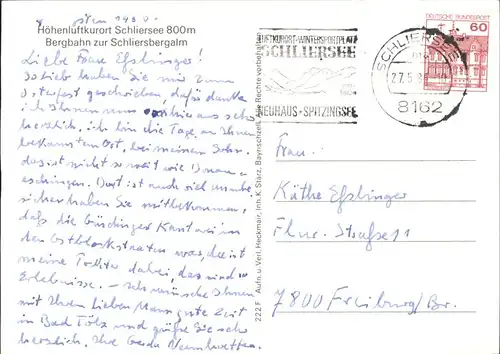 Höhenluftkurort Schliersee 800m
Bergbahn zur Schliersbergalm
Liebe Frau Eßlinger!
So lieb haben Sie mir zum
Osterfest geschrieben, dafür danke
ich Ihnen von hier aus sehr
herzlich. Ich bin die Tage an Ihnen
bekanntem Ort, bei meinem Sohn.
das ist nicht so weit wie Donau
eschingen. Dort ist auch viel
sicher haben Sie mitbekommen,
daß die Kantorei in
den Ostblockstaaten war, da ist
meine Tochter dabei, das sind
Erlebnisse. Ich wünsche Ihnen
mit Ihrem lieben Mann gute Zeit
in Bad Tölz und grüße Sie sehr
herzlich. Ihre Gerda
222 F Aufn. u. Verl. Heckmair, Inh. K. Starz, Bayrischzell. Alle Rechte vorbehalten
LUFTKURORT-WINTERSPORTPLATZ
SCHLIERSEE
NEUHAUS·SPITZINGSEE
SCHLIERSEE
27.5.
8162
DEUTSCHE BUNDESPOST
60
Frau
Käthe Eßlinger
Flur-Straße 11
7800 Freiburg/Br.